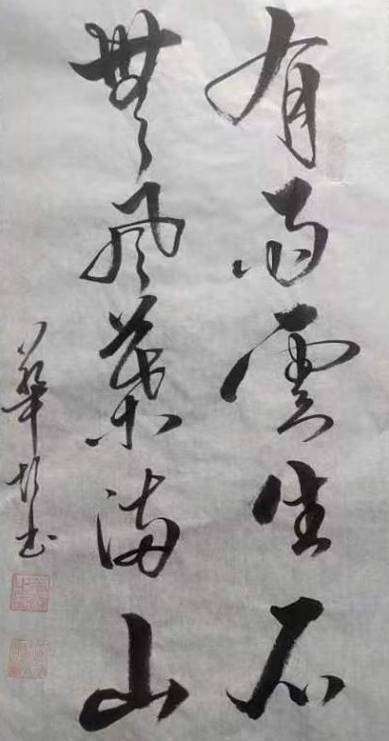 有雨雲生石
無風葉滿山
華
書